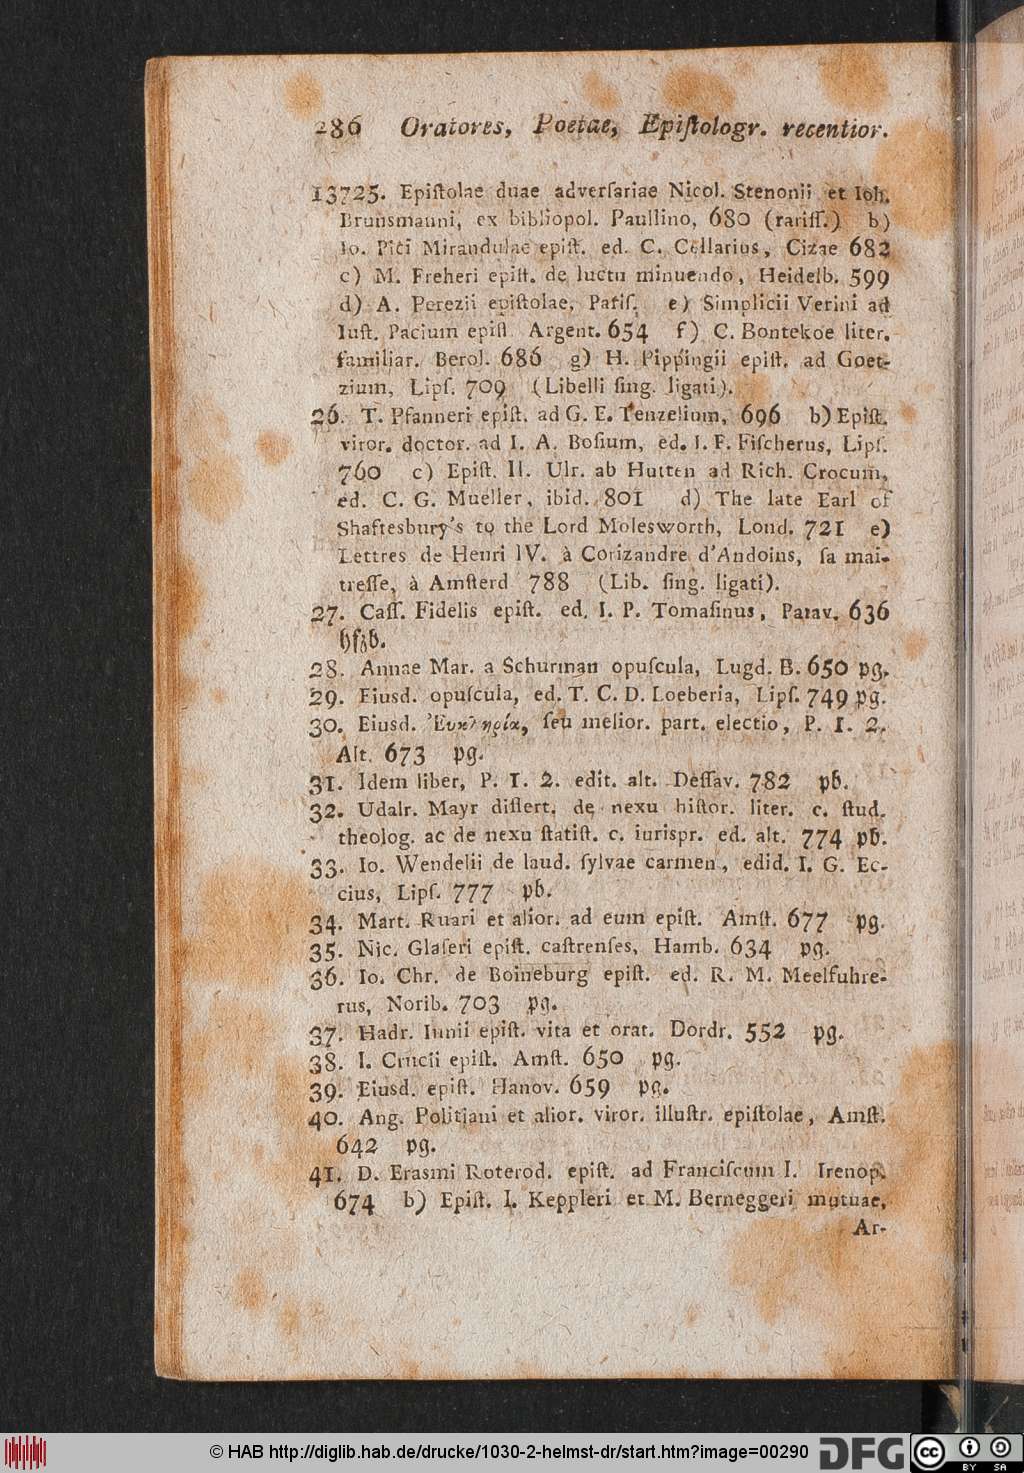 286 Oratores, Poetae, Epiſtologr. recentior.
13725. Epiſtolae duae adverſariae Nicol. Stenonii et Ioh.
Brunsmanni, ex bibliopol. Paullino, 680 (rariſſ.) b)
Io. Pici Mirandulae epiſt. ed. C. Cellarius, Cizae 682
c) M. Freheri epiſt. de luctu minuendo, Heidelb. 599
d) A. Perezii epiſtolae, Pariſ. e) Simplicii Verini ad
Iuſt. Pacium epiſt Argent. 654 f) C. Bontekoe liter.
familiar. Berol. 686 g) H. Pippingii epiſt. ad Goet-
zium, Lipſ. 709 (Libelli ſing. ligati).
26. T. Pfanneri epiſt. ad G. E. Tenzelium, 696 b) Epiſt.
viror. doctor. ad I. A. Boſium, ed. I. F. Fiſcherus, Lipſ.
760 c) Epiſt. II. Ulr. ab Hutten ad Rich. Crocum,
ed. C. G. Mueller, ibid. 801 d) The late Earl of
Shaftesbury's to the Lord Molesworth, Lond. 721 e)
Lettres de Henri IV. à Corizandre d'Andoins, ſa mai-
treſſe, à Amſterd 788 (Lib. ſing. ligati).
27. Caſſ. Fidelis epiſt. ed. I. P. Tomaſinus, Patav. 636
hfzb.
28. Annae Mar. a Schurman opuſcula, Lugd. B. 650 pg.
29. Eiusd. opuſcula, ed. T. C. D. Loeberia, Lipſ. 749 pg.
30. Eiusd. Ἐυκληρία, ſeu melior. part. electio, P. 1. 2.
Alt. 673 pg.
31. Idem liber, P. 1. 2. edit. alt. Deſſav. 782 pb.
32. Udalr. Mayr diſſert. de nexu hiſtor. liter. c. ſtud.
theolog. ac de nexu ſtatiſt. c. iurispr. ed. alt. 774 pb.
33. Io. Wendelii de laud. ſylvae carmen, edid. I. G. Ec-
cius, Lipſ. 777 pb.
34. Mart. Ruari et alior. ad eum epiſt. Amſt. 677 pg.
35. Nic. Glaſeri epiſt. caſtrenſes, Hamb. 634 pg.
36. Io. Chr. de Boineburg epiſt. ed. R. M. Meelfuhre-
rus, Norib. 703 pg.
37. Hadr. Iunii epiſt. vita et orat. Dordr. 552 pg.
38. I. Crucii epiſt. Amſt. 650 pg.
39. Eiusd. epiſt. Hanov. 659 pg.
40. Ang. Politiani et alior. viror. illuſtr. epiſtolae, Amſt.
642 pg.
41. D. Eraſmi Roterod. epiſt. ad Franciſcum I. Irenop.
674 b) Epiſt. I. Keppleri et M. Berneggeri mutuae,
Ar-
© HAB http://diglib.hab.de/drucke/1030-2-helmst-dr/start.htm?image=00290
DFG
cc BY SA